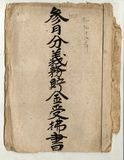 参月分義務貯金受拂書